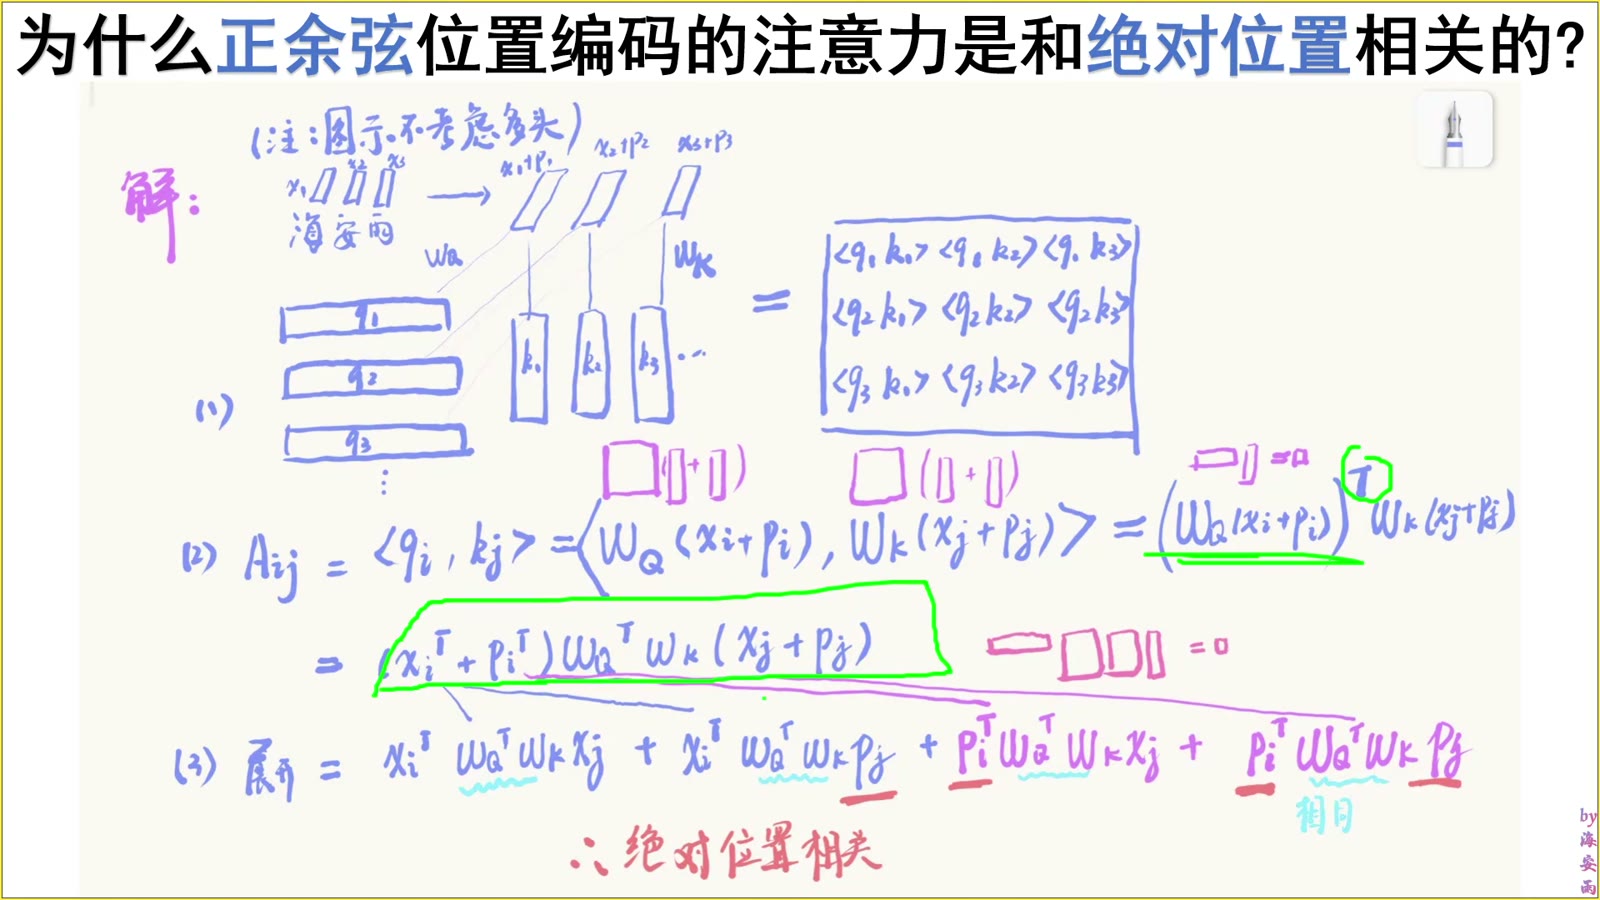 为什么正余弦位置编码的注意力是和绝对位置相关的?
(注:图示不考虑多头)
解:
x₁ x₂ x₃ → x₁+p₁ x₂+p₂ x₃+p₃
海安雨
W_Q W_K
(1)
q₁
q₂
q₃
⋮
k₁ k₂ k₃ …
=
<q₁ k₁> <q₁ k₂> <q₁ k₃>
<q₂ k₁> <q₂ k₂> <q₂ k₃>
<q₃ k₁> <q₃ k₂> <q₃ k₃>
(2) Aᵢⱼ = <qᵢ, kⱼ> = <W_Q(xᵢ+pᵢ), W_K(xⱼ+pⱼ)> = (W_Q(xᵢ+pᵢ))ᵀ W_K(xⱼ+pⱼ)
= (xᵢᵀ+pᵢᵀ)W_Qᵀ W_K(xⱼ+pⱼ)
(3) 展开 = xᵢᵀ W_Qᵀ W_K xⱼ + xᵢᵀ W_Qᵀ W_K pⱼ + pᵢᵀ W_Qᵀ W_K xⱼ + pᵢᵀ W_Qᵀ W_K pⱼ
相同
∴ 绝对位置相关
by
海
安
雨